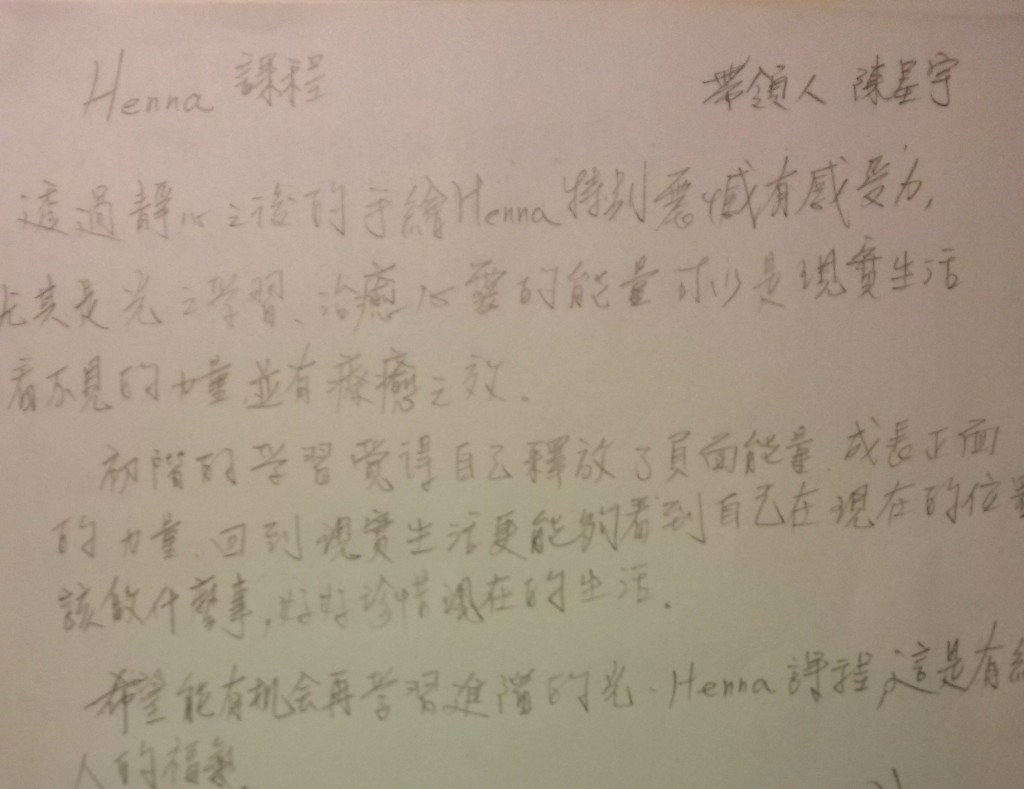 Henna 課程 帶領人 陳星宇
透過靜心之後的手繪Henna特別震憾有感受力,
尤其是光之学習、治癒心靈的能量可以是現實生活
看不見的力量並有療癒之效.
初階的学習覺得自己釋放了負面能量.成長正面
的力量.回到現實生活更能夠看到自己在現在的位置
該做什麼事,好好珍惜現在的生活.
希望能有机会再学習進階的光.Henna課程,這是有緣
人的福氣.